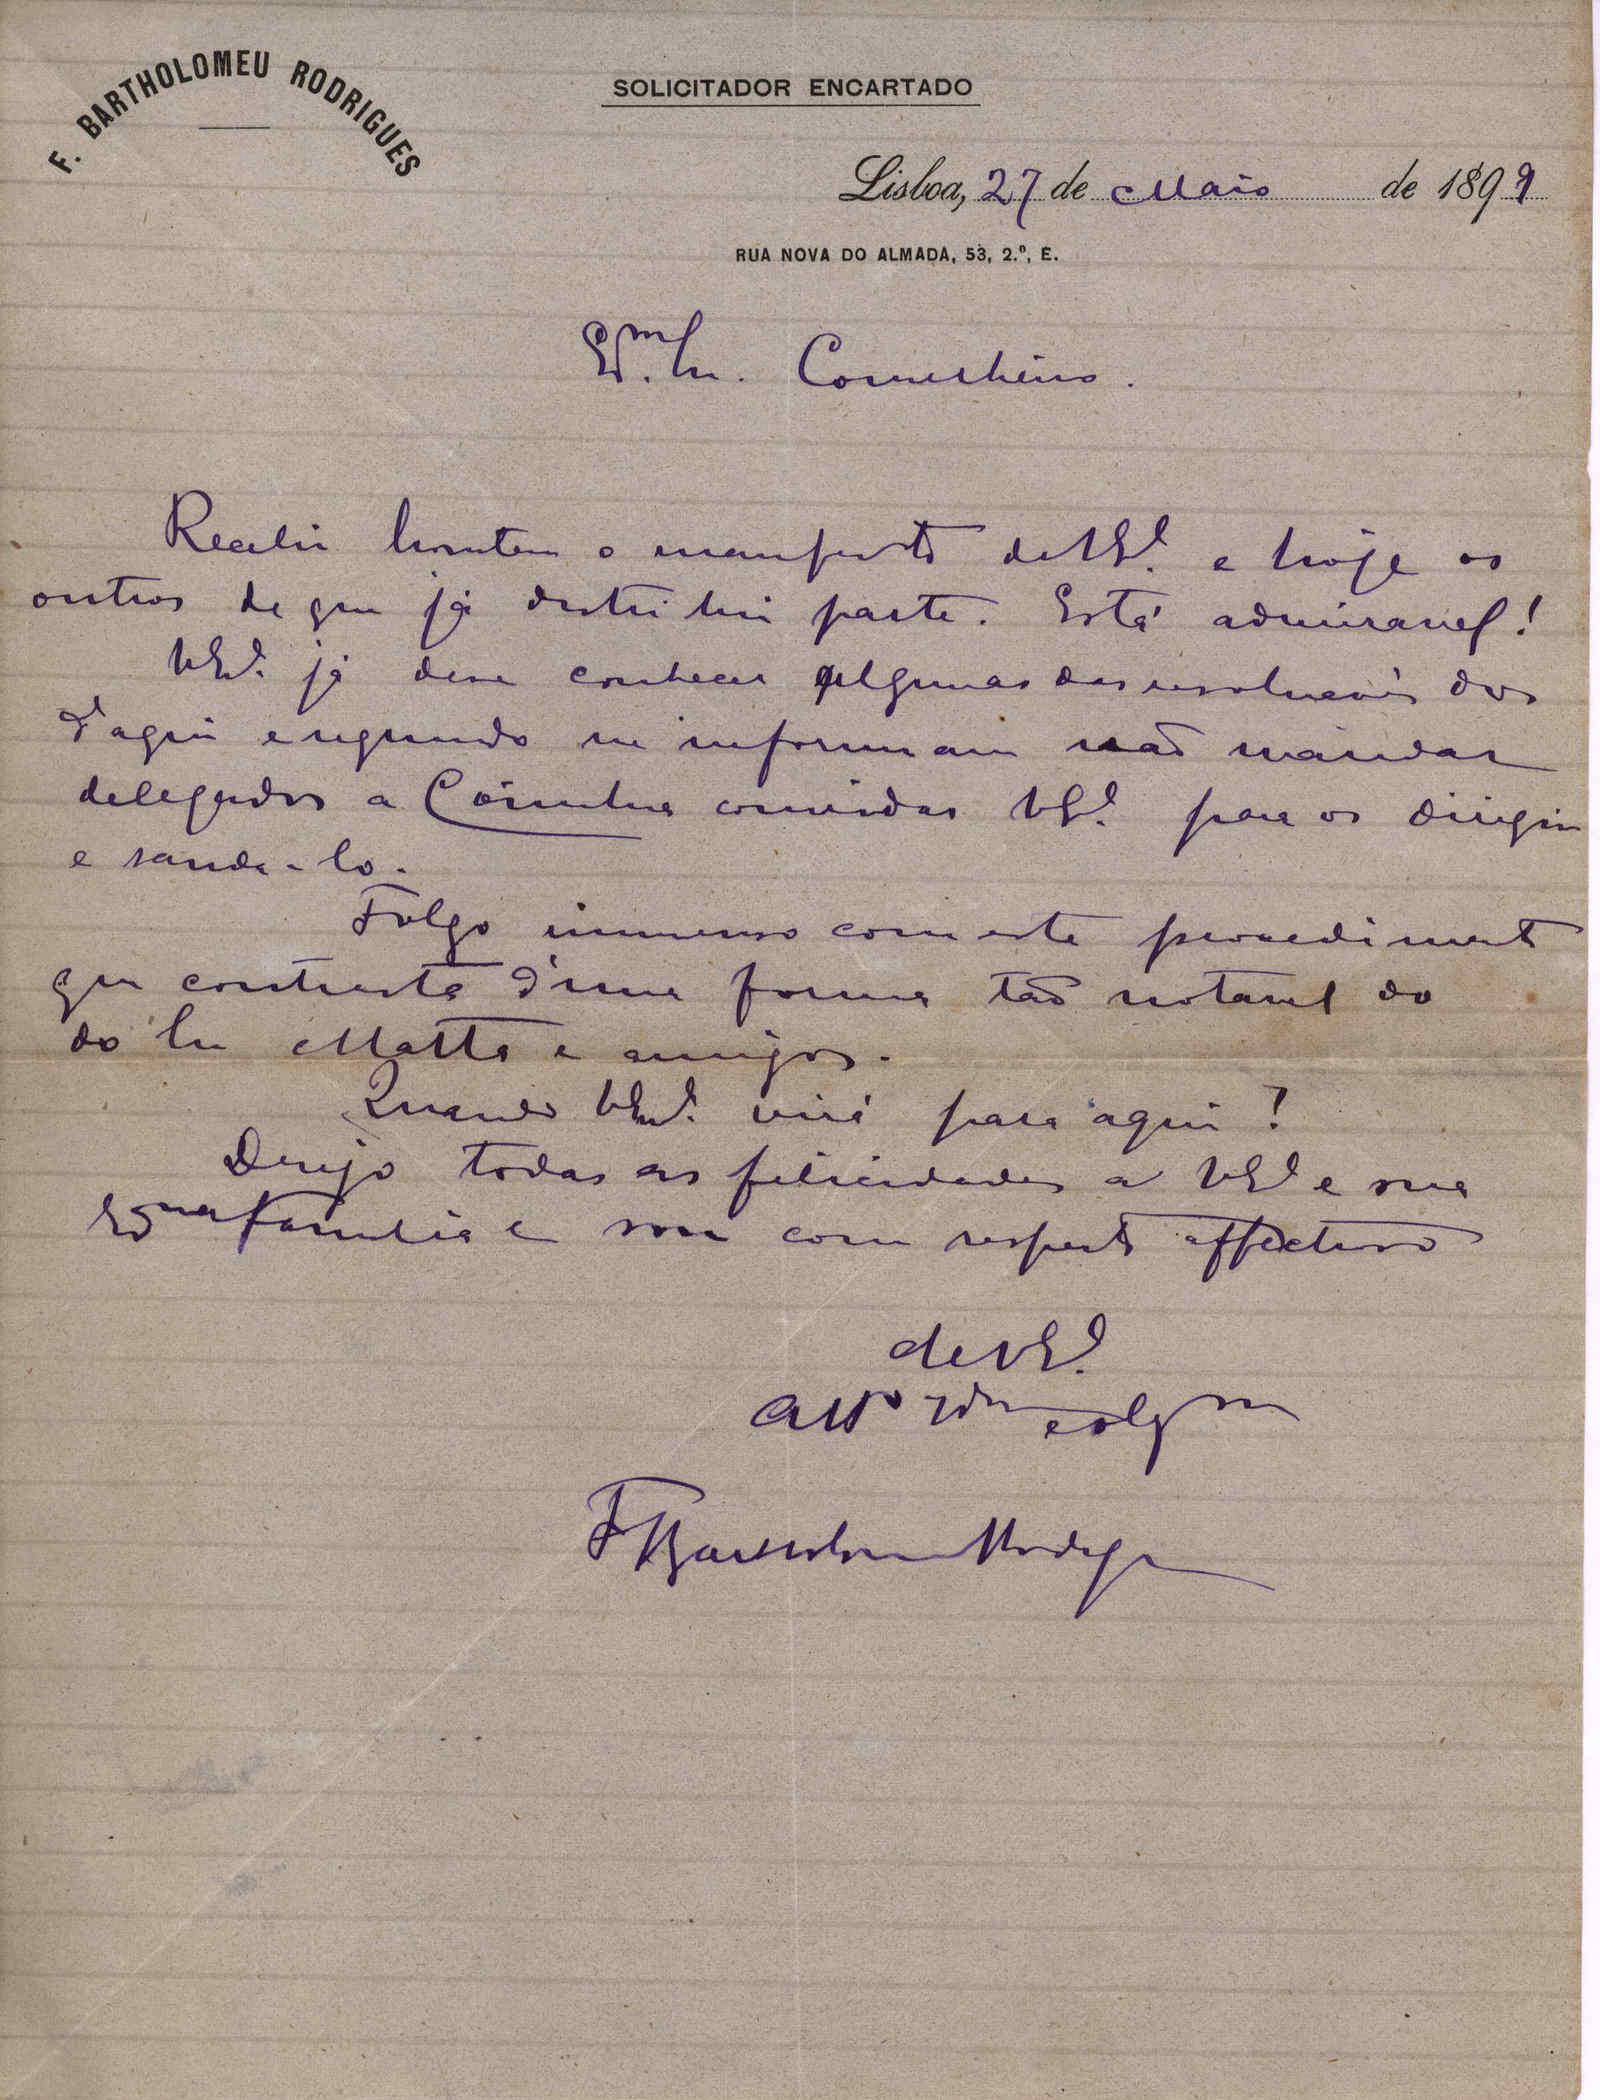 F. BARTHOLOMEU RODRIGUES
SOLICITADOR ENCARTADO
Lisboa, 27 de Maio de 1899
RUA NOVA DO ALMADA, 53, 2.º, E.
Exm. Sr. Conselheiro.
Recebi hontem o manifesto de V Exª. e hoje os
outros de que já destribui parte. Está admiravel!
V Exª. já deve conhecer algumas das resoluções dos
d'aqui e segundo me informam vão mandar
delegados a Coimbra convidar V Exª. para os dirigir
e sauda-lo.
Folgo immenso com este procedimento
que contrasta d'uma forma tão notavel do
do Sr Matta e amigos.
Quando V Exª. virá para aqui?
Desejo todas as felicidades a V Exª e sua
Exma familia e sou com respeito affectuoso
de V Exª.
Atto Vdor e obgmo
F Bartholomeu Rodrigues